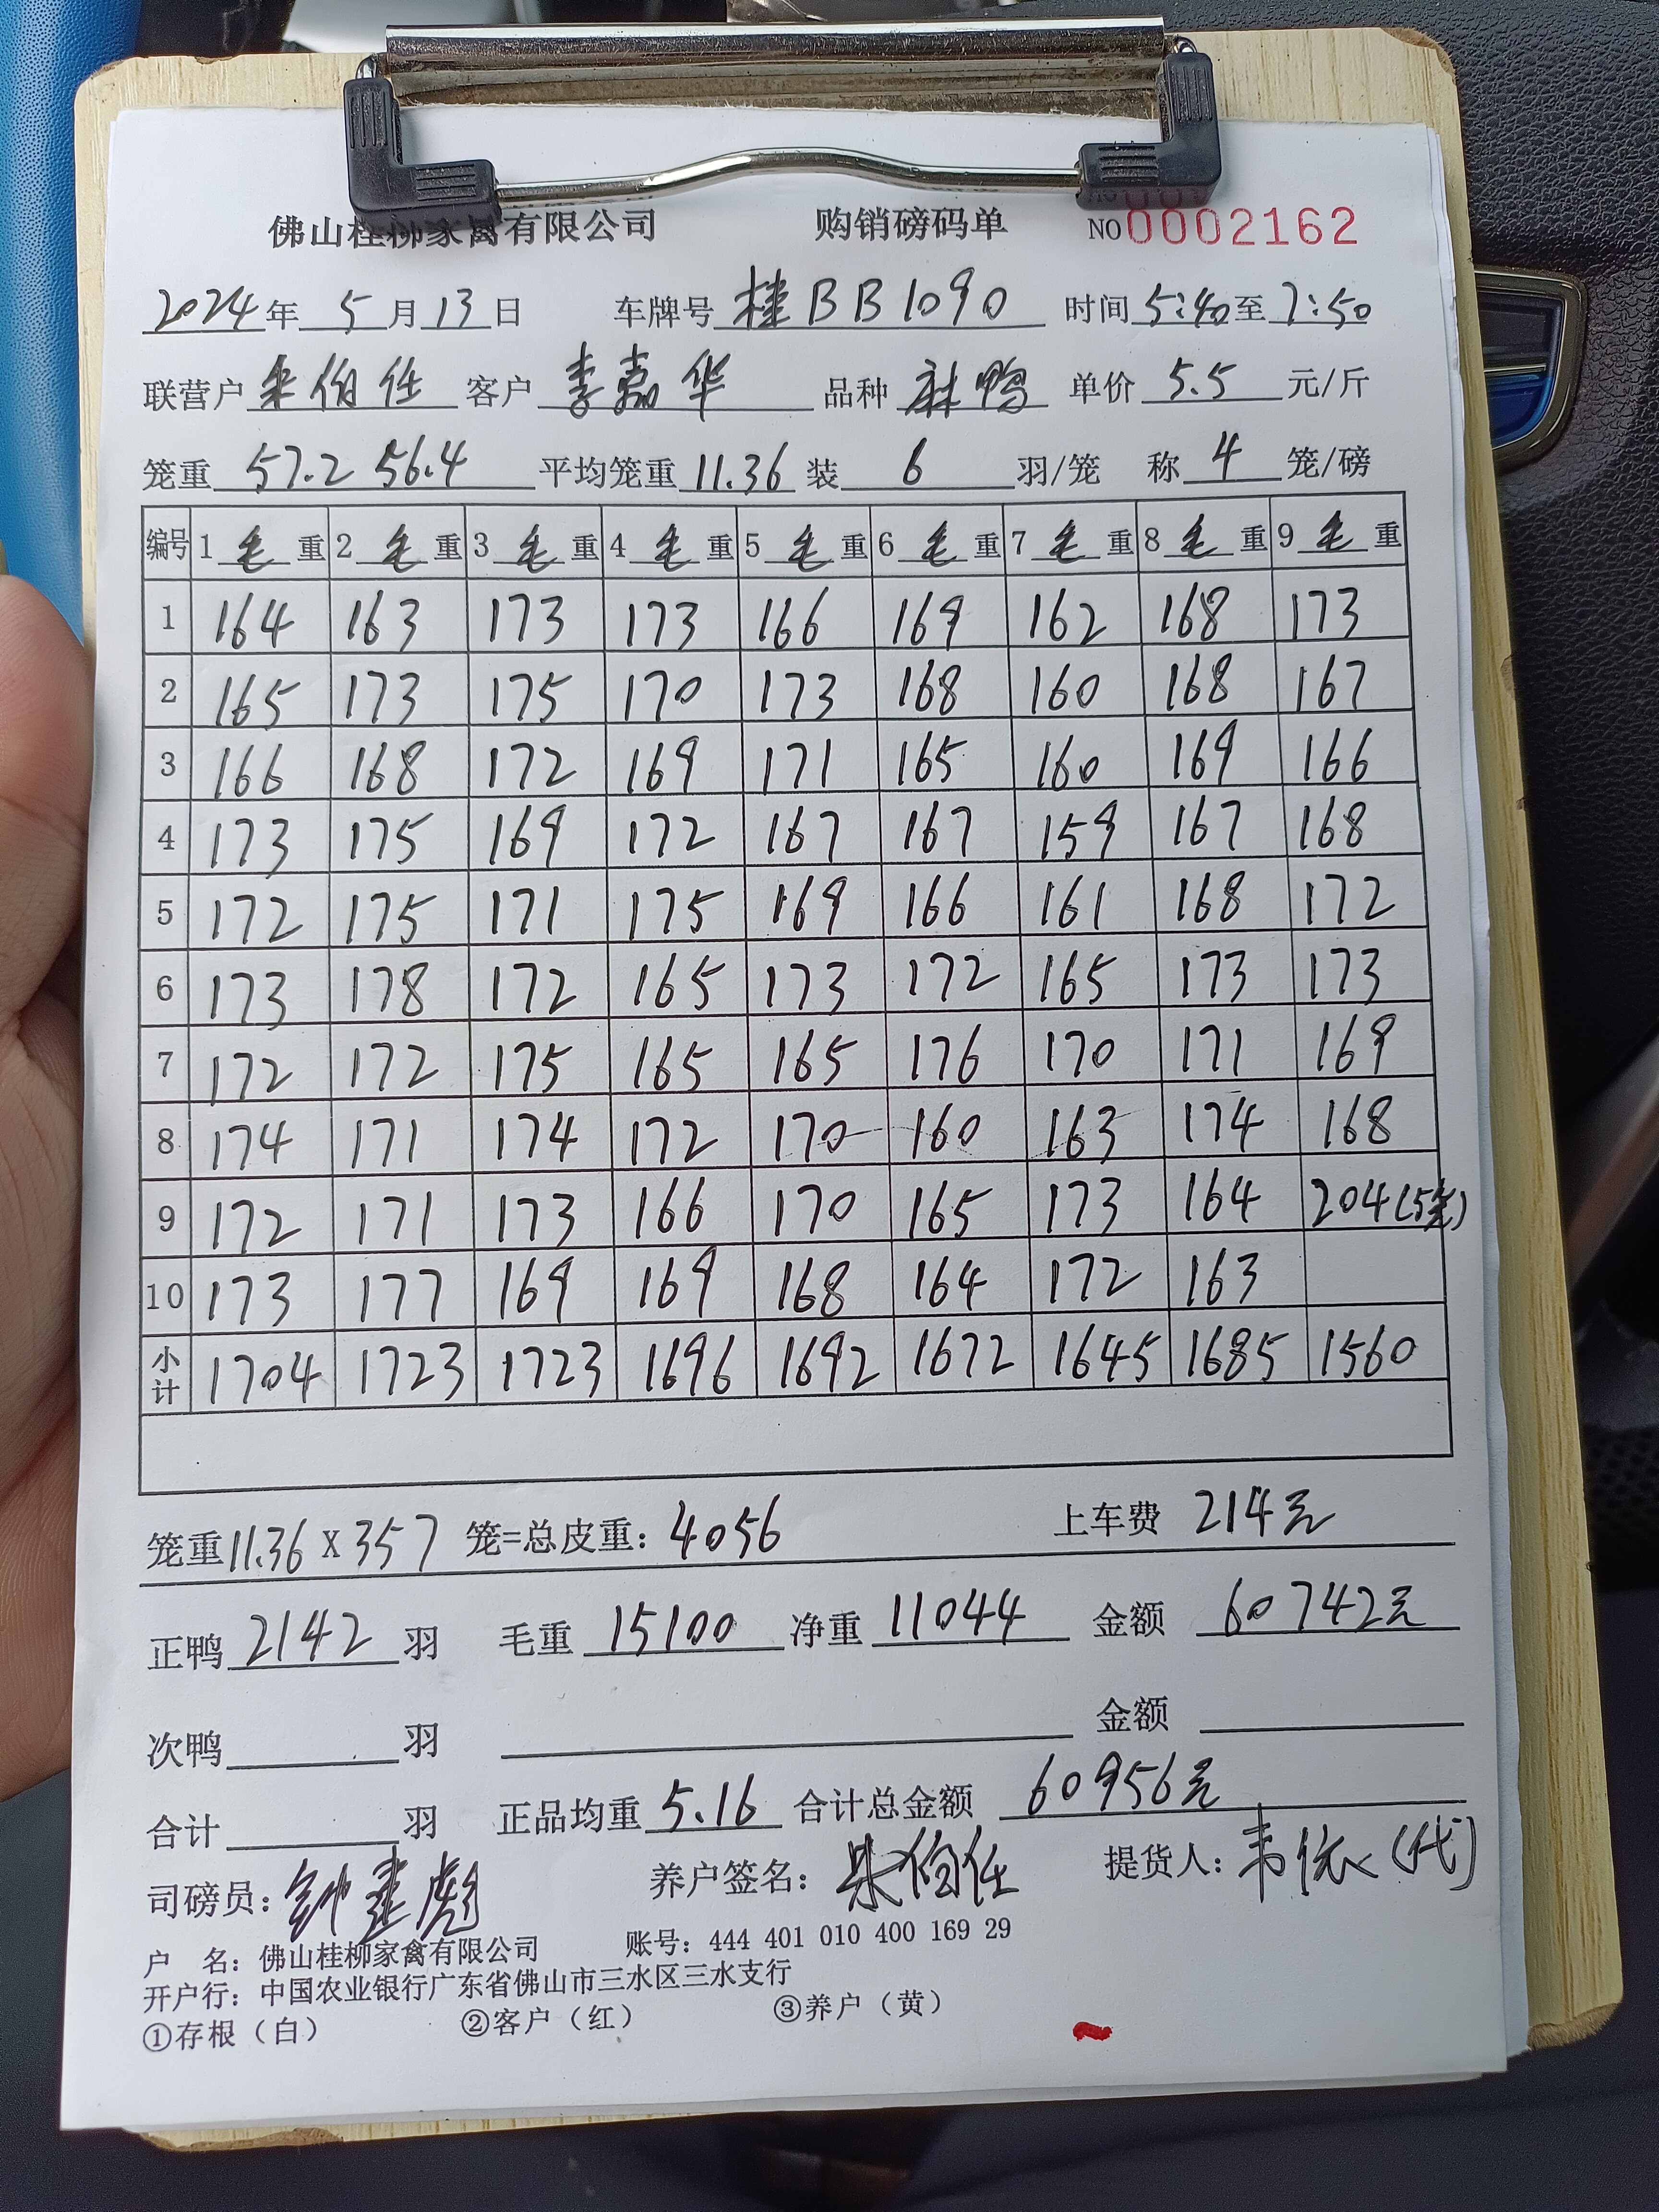 佛山桂柳家禽有限公司 购销磅码单 NO 0002162
2024年 5月13日 车牌号 桂BB1090 时间 5:40至7:50
联营户 朱伯任 客户 李嘉华 品种 麻鸭 单价 5.5 元/斤
笼重 57.2 56.4 平均笼重 11.36 装 6 羽/笼 称 4 笼/磅
编号 1 毛 重 2 毛 重 3 毛 重 4 毛 重 5 毛 重 6 毛 重 7 毛 重 8 毛 重 9 毛 重
1 164 163 173 173 166 169 162 168 173
2 165 173 175 170 173 168 160 168 167
3 166 168 172 169 171 165 160 169 166
4 173 175 169 172 167 167 159 167 168
5 172 175 171 175 169 166 161 168 172
6 173 178 172 165 173 172 165 173 173
7 172 172 175 165 165 176 170 171 169
8 174 171 174 172 170 160 163 174 168
9 172 171 173 166 170 165 173 164 204(5笼)
10 173 177 169 169 168 164 172 163
小计 1704 1723 1723 1696 1692 1672 1645 1685 1560
笼重11.36 X 357 笼=总皮重: 4056 上车费 214元
正鸭 2142 羽 毛重 15100 净重 11044 金额 60742元
次鸭 羽 金额
合计 羽 正品均重 5.16 合计总金额 60956元
司磅员: 养户签名: 朱伯任 提货人: (代)
户 名: 佛山桂柳家禽有限公司 账号: 444 401 010 400 169 29
开户行: 中国农业银行广东省佛山市三水区三水支行
①存根（白） ②客户（红） ③养户（黄）